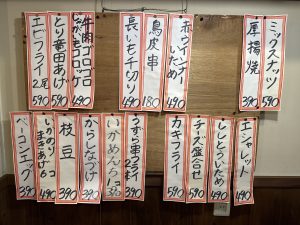 ミックスナッツ
590
厚揚焼
390
赤ウインナーいため
490
鳥皮串
180
長いも千切り
490
牛肉ゴロゴロじゃがいもコロッケ
490
とり竜田あげ
590
エビフライ2尾
590
エシャレット
490
ししとういため
490
チーズ盛合せ
590
カキフライ
590
うずら串2本
390
いかめんち2コ
390
からしなげ
390
枝豆
390
いかのりまきあげ6コ
490
ベーコンエッグ
390